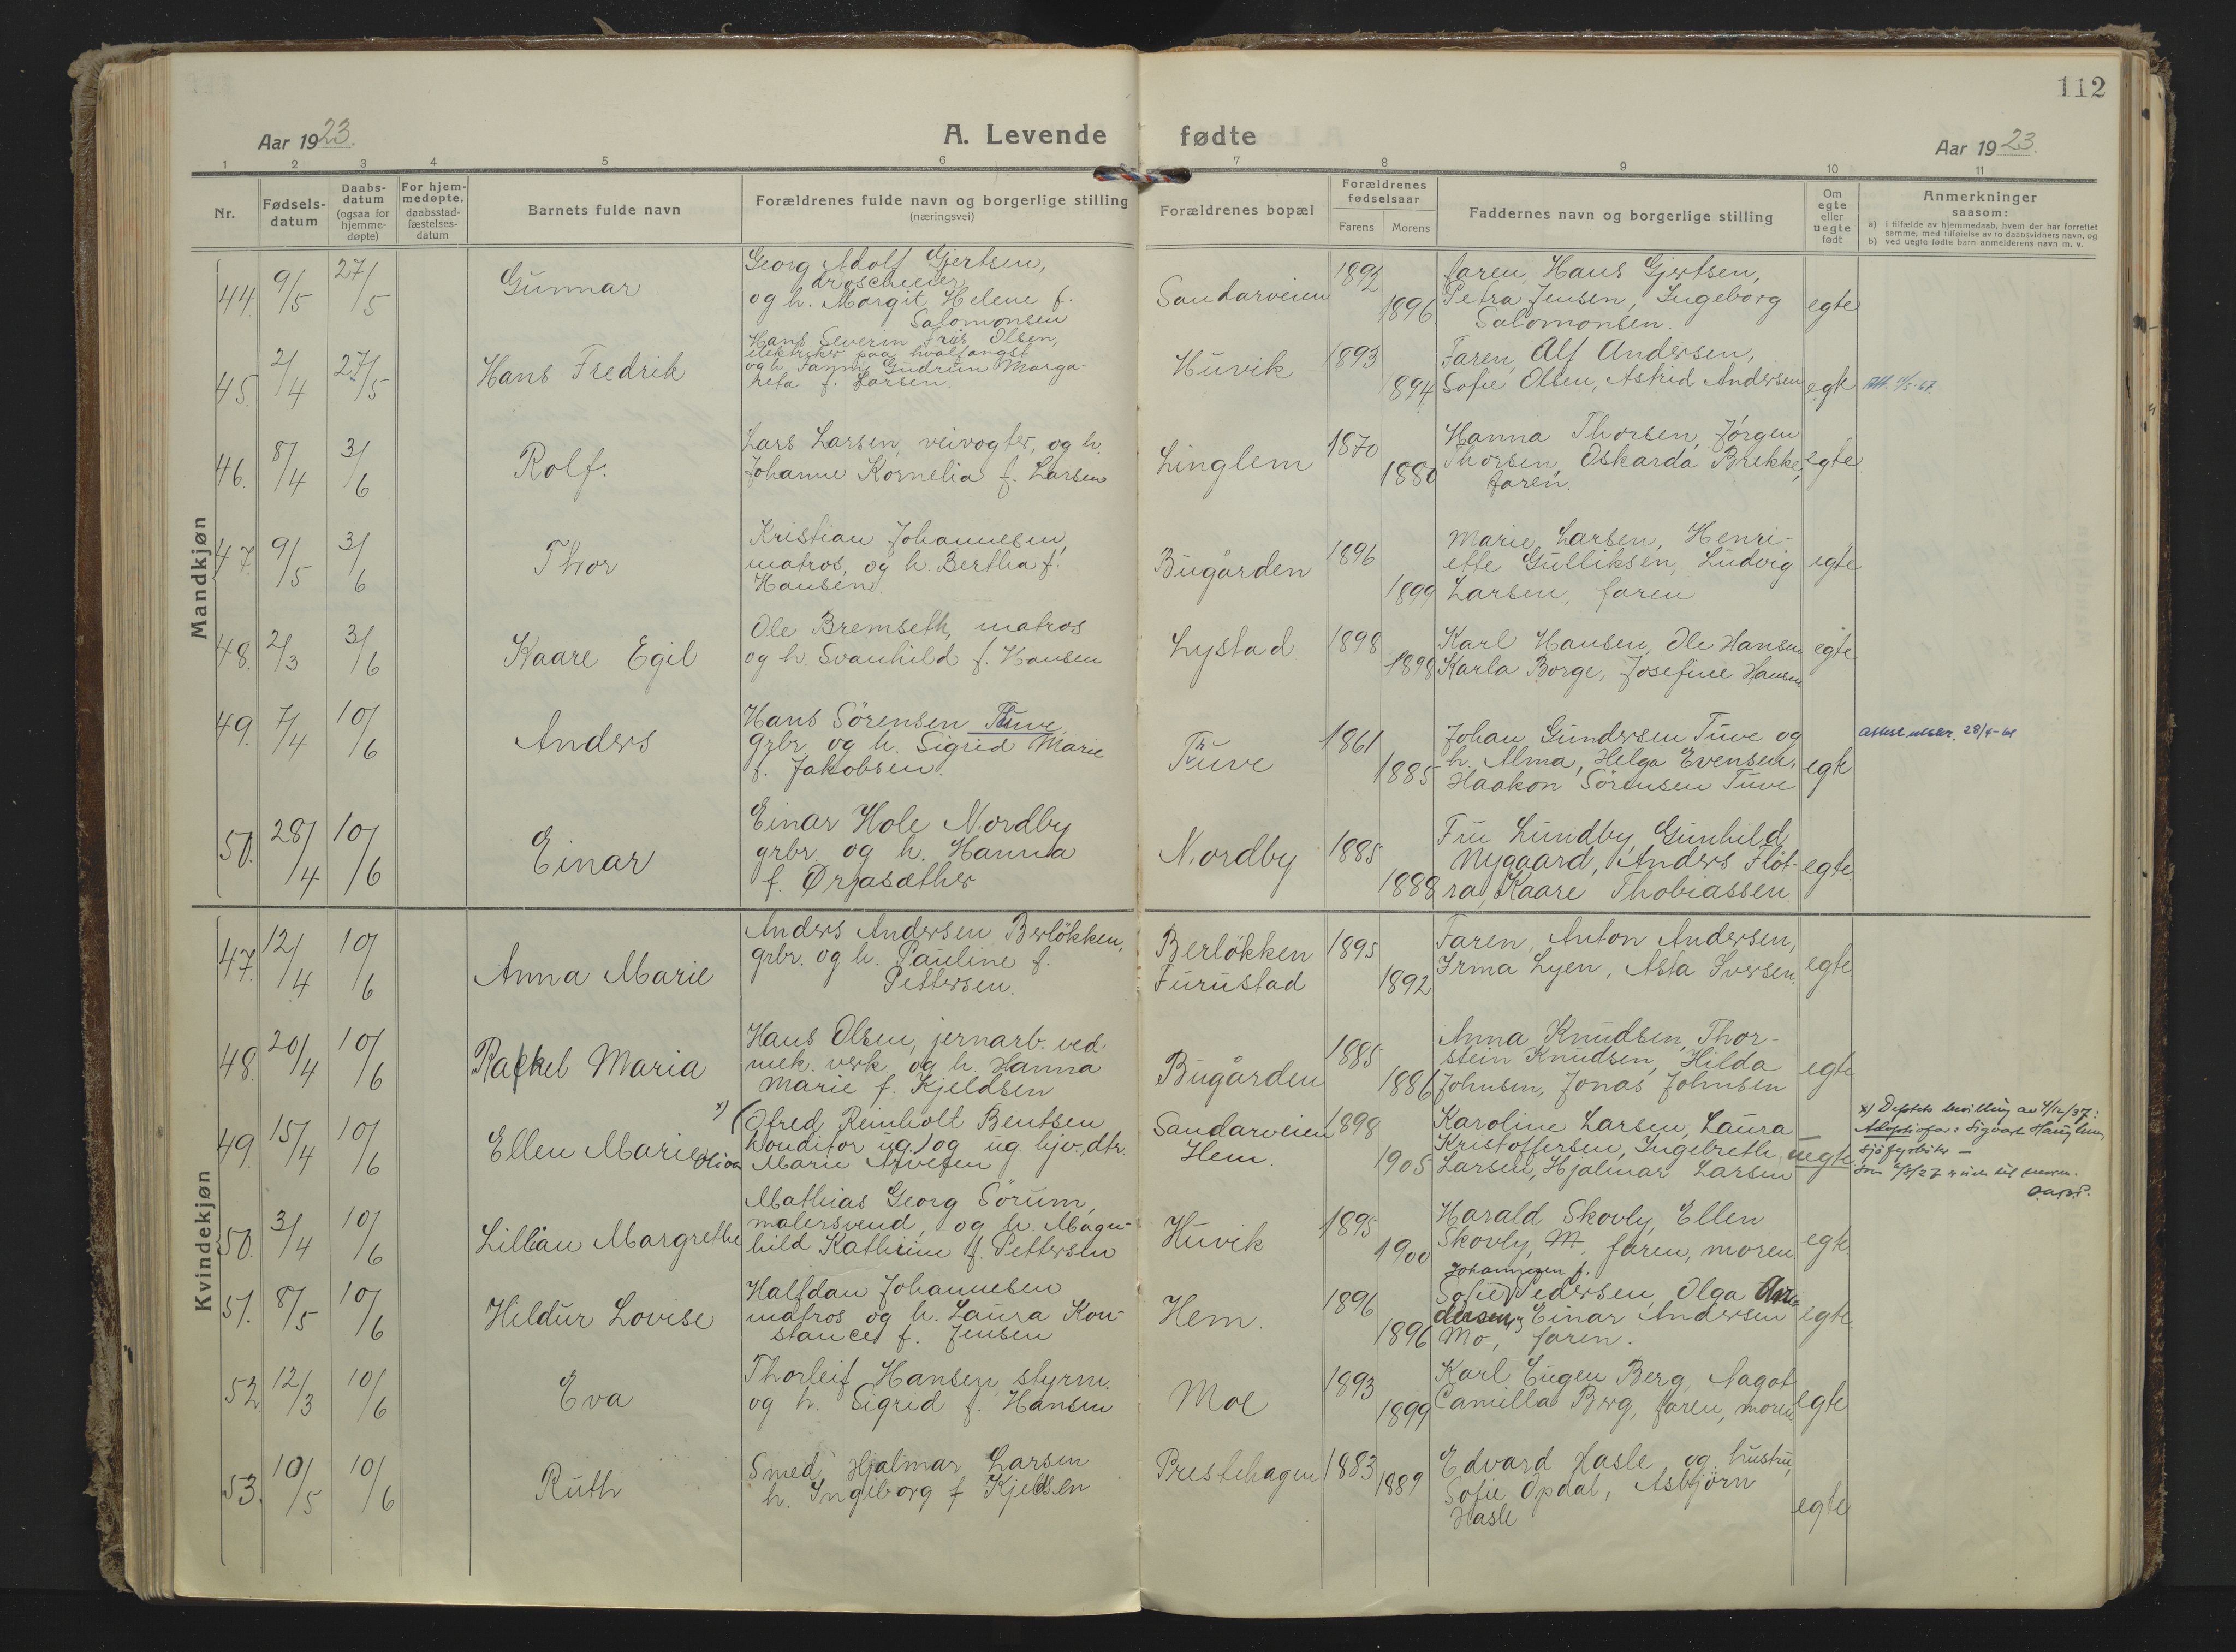 112
Aar 1923.
A. Levende fødte
Aar 1923.
1 2 3 4 5 6 7 8 9 10 11
Nr.
Fødsels-
datum
Daabs-
datum
(ogsaa for
hjemme-
døpte)
For hjem-
medøpte,
daabsstad-
fæstelses-
datum
Barnets fulde navn
Forældrenes fulde navn og borgerlige stilling
(næringsvei)
Forældrenes bopæl
Forældrenes
fødselsaar
Farens Morens
Faddernes navn og borgerlige stilling
Om
egte
eller
uegte
født
Anmerkninger
saasom:
a) i tilfælde av hjemmedaab, hvem der har forrettet
samme, med tilføielse av to daabsvidners navn, og
b) ved uegte fødte barn anmelderens navn m. v.
Mandkjøn
44. 9/5 27/5 Gunnar
Georg Adolf Gjertsen,
droscheeier
og h. Margit Helene f.
Salomonsen
Sandarveien 1892 1896
faren, Hans Gjertsen,
Petra Jensen, Ingeborg
Salomonsen.
egte
45. 2/4 27/5 Hans Fredrik
Hans Severin Friis Olsen,
elektriker paa hvalfangst
og h. Fanny Gudrun Marga-
reta f. Larsen.
Huvik 1893 1894
Faren, Alf Andersen,
Sofie Olsen, Astrid Andersen
egte
46. 8/4 3/6 Rolf.
Lars Larsen, veivogter, og h.
Johanne Kornelia f. Larsen
Linglem 1870 1880
Hanna Thorsen, Jörgen
Thorsen, Oskarda Brekke,
faren.
egte
47. 9/5 3/6 Thor
Kristian Johannesen,
matros, og h. Bertha f.
Hansen.
Bugården 1896 1899
Marie Larsen, Henri-
ette Gulliksen, Ludvig
Larsen, faren
egte
48. 2/3 3/6 Kaare Egil
Ole Bremseth, matros
og h. Svanhild f. Hansen
Lystad 1898 1898
Karl Hansen, Ole Hansen
Karla Borge, Josefine Hansen
egte
49. 7/4 10/6 Anders
Hans Sörensen Tuve,
grbr. og h. Sigrid Marie
f. Jakobsen.
Tuve 1861 1885
Johan Gundersen Tuve og
h. Alma, Helga Evensen,
Haakon Sörensen Tuve
egte
50. 28/4 10/6 Einar
Einar Hole Nordby
grbr. og h. Hanna
f. Ørjasæther
Nordby 1885 1888
Fru Lundby, Gunhild
Nygaard, Anders Flöt-
ra, Kaare Thobiassen.
egte
Kvindekjøn
47. 12/4 10/6 Anna Marie
Anders Andersen Berløkken,
grbr. og h. Pauline f.
Pettersen.
Berløkken
Furustad
1895 1892
Faren, Anton Andersen,
Irma Lyen, Asta Iversen.
egte
48. 20/4 10/6 Rakel Maria
Hans Olsen, jernarb. ved
mek. verk. og h. Hanna
Marie f. Kjeldsen
Bugården 1885 1886
Anna Knudsen, Thor-
stein Knudsen, Hilda
Johnsen, Jonas Johnsen
egte
49. 15/4 10/6 Ellen Marie Olivia x)
(Ofred Reinholt Bentsen
konditor ug.) og ug. hjv., dtr.
Marie Arvesen
Sandarveien
Hem.
1898 1905
Karoline Larsen, Laura
Kristoffersen, Ingebreth
Larsen, Hjalmar Larsen
uegte
50. 3/4 10/6 Lillian Margrethe
Mathias Georg Sörum,
malersvend, og h. Magn-
hild Kathrine f. Pettersen
Huvik 1895 1900
Harald Skovly, Ellen
Skovly, faren, moren
egte
51. 8/5 10/6 Hildur Lovise
Halfdan Johannesen
matros og h. Laura Kon-
stance f. Jensen
Hem. 1896 1896
Johannesen f.
Sofie Pedersen, Olga
Einar Andersen
Mo, faren.
egte
52. 12/3 10/6 Eva
Thorleif Hansen styrm.
og h. Sigrid f. Hansen
Moe 1893 1899
Karl Eugen Berg, Nagot
Camilla Berg, faren, moren
egte
53. 10/5 10/6 Ruth
Smed Hjalmar Larsen
h. Ingeborg f Kjeldsen
Prestehagen 1883 1889
Edvard Hasle og hustru,
Sofie Opdal, Asbjörn
Hasle
egte